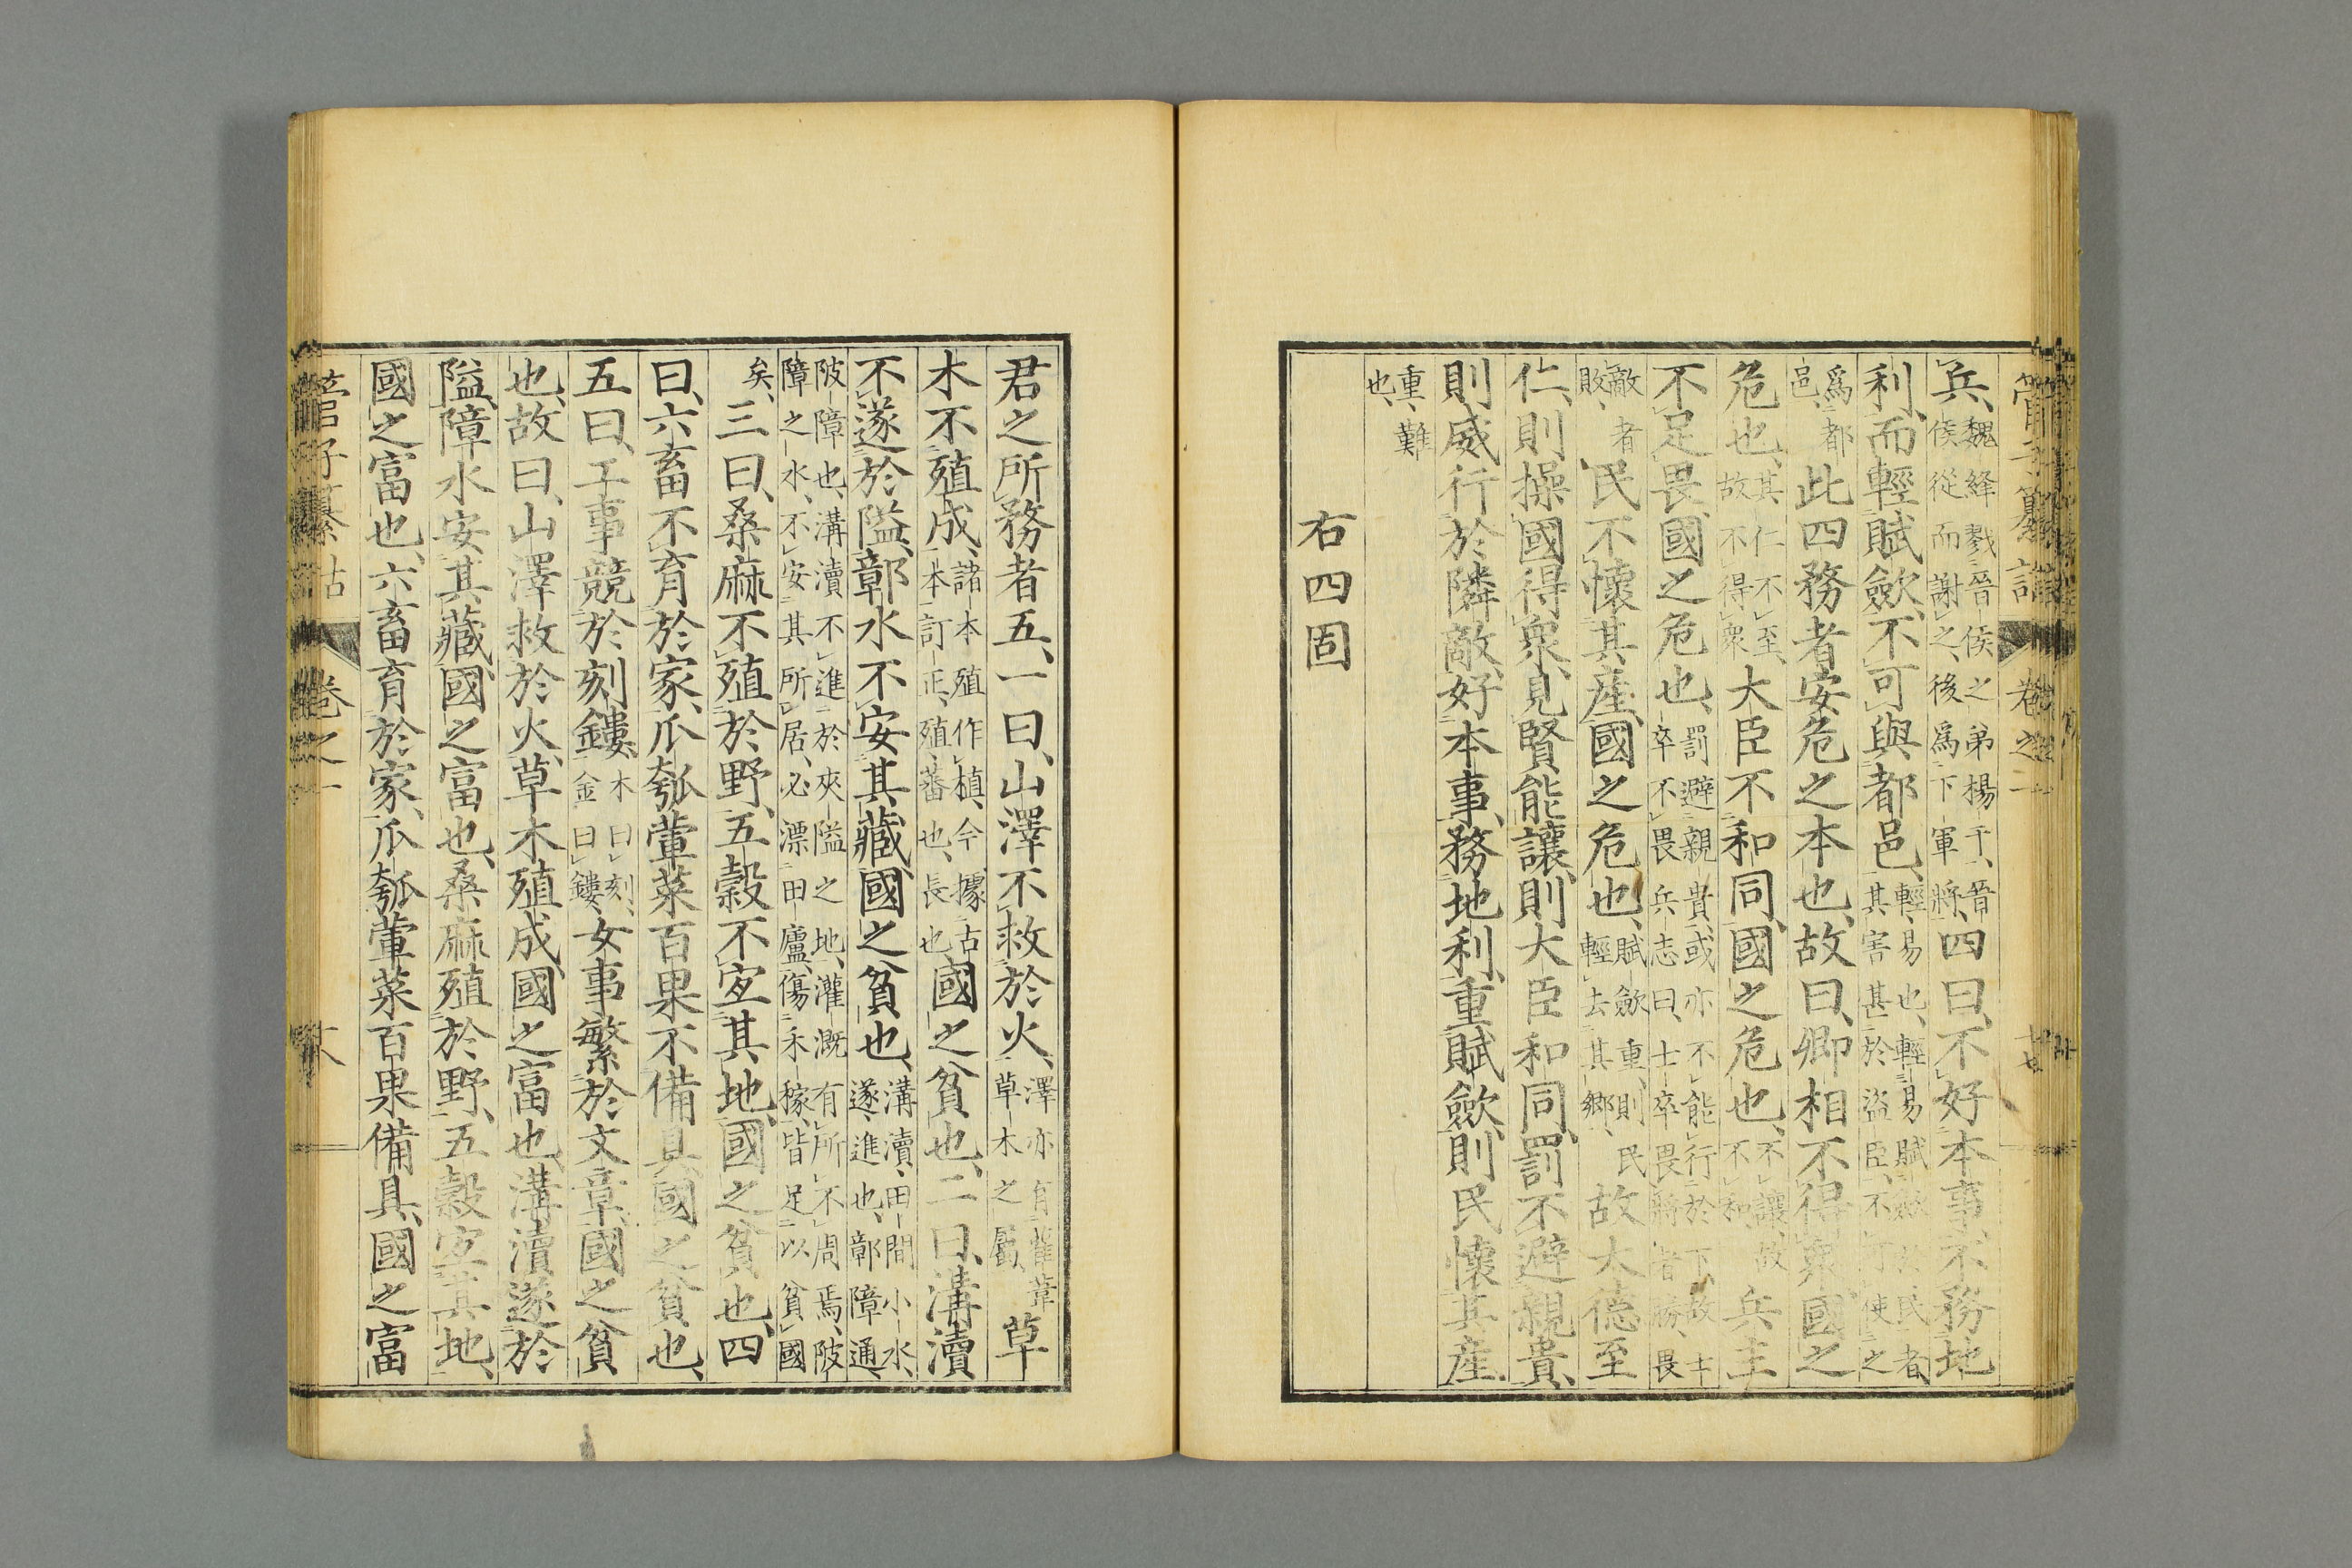 管子纂詁 卷之一 十七
兵、魏絳戮晉侯之弟楊干、晉侯從而謝之、後爲下軍將、四曰、不好本事、不務地
利、而輕賦斂、不可與都邑、輕、易也、輕易賦斂民者其害甚於盜臣、不可使之
爲都邑、此四務者、安危之本也、故曰、卿相不得衆、國之
危也、其仁不至、故不得衆大臣不和同、國之危也、不讓故不和、兵主
不足畏、國之危也、罰避親貴、或亦不能行於下、故士卒不畏兵志曰、士卒畏將者勝、畏
敵者敗、民不懷其產、國之危也、賦斂重、則民輕去其鄉、故大德至
仁、則操國得衆、見賢能讓、則大臣和同、罰不避親貴、
則威行於隣敵、好本事、務地利、重賦斂、則民懷其產、
重、難也、
右四固
君之所務者五、一曰、山澤不救於火、澤亦有萑葦草木之屬、草
木不殖成、諸本殖作植、今據古本訂正、殖、蕃也、長也國之貧也、二曰、溝瀆
不遂於隘、鄣水不安其藏、國之貧也、溝瀆、田間小水、遂、進也、鄣障通、
陂障也、溝瀆不進於夾隘之地、灌漑有所不周焉、陂障之水、不安其所居、必漂田廬、傷禾稼、皆足以貧國
矣、三曰、桑麻不殖於野、五穀不宐其地、國之貧也、四
曰、六畜不育於家、瓜瓠葷菜百果不備具、國之貧也、
五曰、工事競於刻鏤、木曰刻、金曰鏤、女事繁於文章、國之貧
也、故曰、山澤救於火、草木殖成、國之富也、溝瀆遂於
隘、障水安其藏、國之富也、桑麻殖於野、五穀宐其地、
國之富也、六畜育於家、瓜瓠葷菜百果備具、國之富
管子纂詁 卷之一 十八